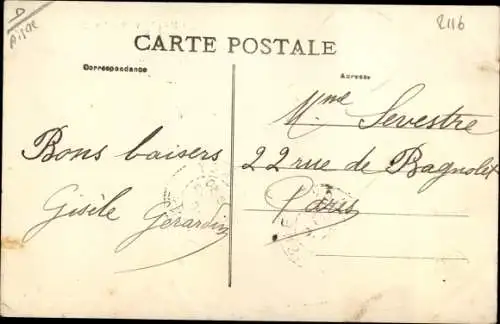 D
Aisne
2116
CARTE POSTALE
Correspondance
Adresse
Bons baisers
Gisèle Gerardin
Mme Sevestre
22 rue de Bagnolet
Paris